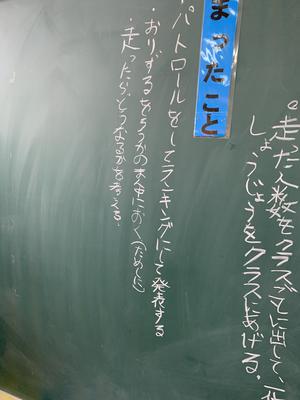 。走った人数をクラスごとに出して、一位
しょうじょうをクラスにあげる。
まったこと
パトロールをしてランキングにして発表する
・おりづるをろうかのまん中におく(ためしに)
・走ったらどうなるかを考える。